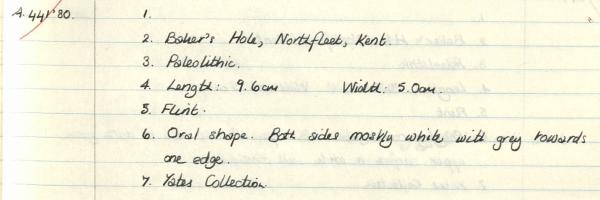 A.441'80.
1.
2. Baker's Hole, Northfleet, Kent.
3. Paleolithic.
4. Length: 9.6cm Width: 5.0cm.
5. Flint.
6. Oral shape. Both sides mostly white with grey towards
one edge.
7. Yates Collection